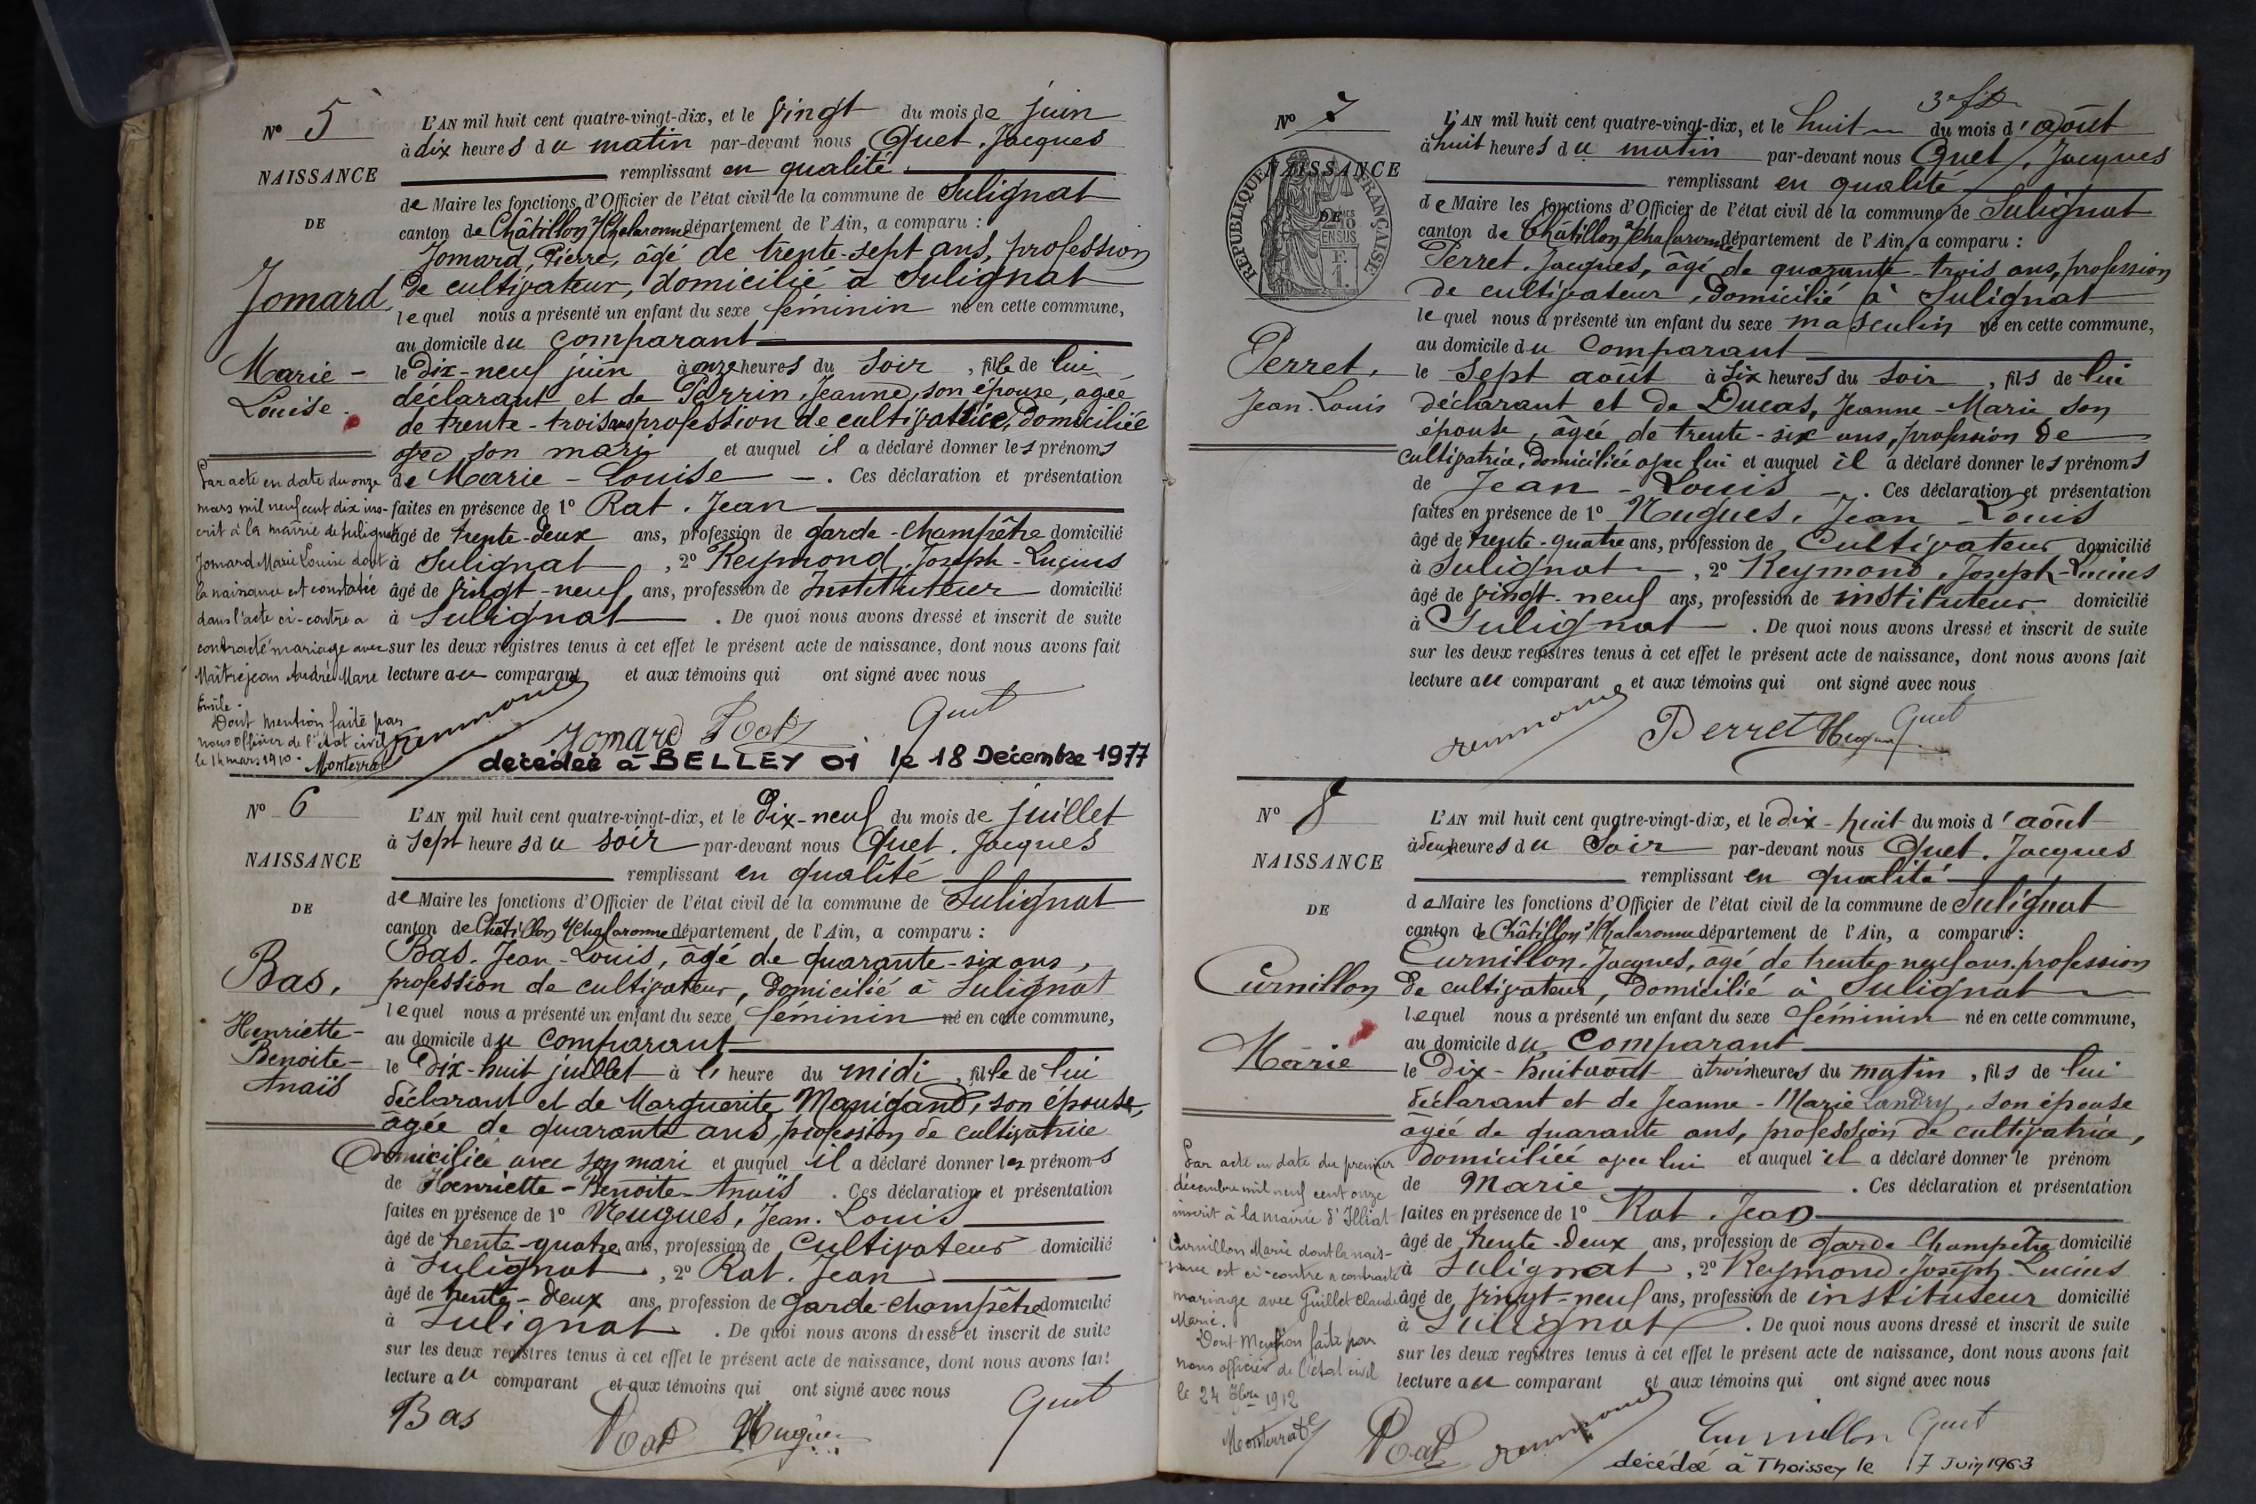 N° 5
NAISSANCE
DE
Jomard
Marie -
Louise.
L'AN mil huit cent quatre-vingt-dix, et le vingt du mois de juin
à dix heures du matin par-devant nous Quet, Jacques
remplissant en qualité
de Maire les fonctions d'Officier de l'état civil de la commune de Sulignat
canton de Châtillon s/Chalaronne département de l'Ain, a comparu :
Jomard, Pierre, âgé de trente-sept ans, profession
de cultivateur, domicilié à Sulignat
lequel nous a présenté un enfant du sexe féminin né en cette commune,
au domicile du comparant
le dix-neuf juin à onze heures du soir, fille de lui
déclarant et de Perrin, Jeanne, son épouse, agée
de trente-trois ans profession de cultivatrice, domiciliée
avec son mari et auquel il a déclaré donner les prénoms
de Marie - Louise - . Ces déclaration et présentation
faites en présence de 1° Rat, Jean
âgé de trente-deux ans, profession de garde-champêtre domicilié
à Sulignat, 2° Reymond, Joseph-Lucius
âgé de vingt-neuf ans, profession de Instituteur domicilié
à Sulignat. De quoi nous avons dressé et inscrit de suite
sur les deux registres tenus à cet effet le présent acte de naissance, dont nous avons fait
lecture au comparant et aux témoins qui ont signé avec nous
Par acte en date du onze
mars mil neuf cent dix ins-
crit à la mairie de Sulignat
Jomard Marie Louise dont
la naissance est constatée
dans l'acte ci-contre a
contracté mariage avec
Maîtrejean André Marc
Emile.
Dont mention faite par
nous officier de l'état civil
le 14 mars 1910.
Monterrat
reymond
Jomard Rat Quet
décédée à BELLEY 01 le 18 Décembre 1977
N° 6
NAISSANCE
DE
Bas,
Henriette-
Benoite-
Anaïs
L'AN mil huit cent quatre-vingt-dix, et le dix-neuf du mois de juillet
à sept heures du soir par-devant nous Quet, Jacques
remplissant en qualité
de Maire les fonctions d'Officier de l'état civil de la commune de Sulignat
canton de Châtillon s/Chalaronne département de l'Ain, a comparu :
Bas, Jean-Louis, âgé de quarante-six ans,
profession de cultivateur, domicilié à Sulignat
lequel nous a présenté un enfant du sexe féminin né en cette commune,
au domicile du comparant
le dix-huit juillet à heure du midi, fille de lui
déclarant et de Marguerite Manigand, son épouse,
âgée de quarante ans, profession de cultivatrice
domiciliée avec son mari et auquel il a déclaré donner les prénoms
de Henriette-Benoite-Anaïs. Ces déclaration et présentation
faites en présence de 1° Nugues, Jean-Louis
âgé de trente-quatre ans, profession de cultivateur domicilié
à Sulignat, 2° Rat, Jean
âgé de trente-deux ans, profession de garde-champêtre domicilié
à Sulignat. De quoi nous avons dressé et inscrit de suite
sur les deux registres tenus à cet effet le présent acte de naissance, dont nous avons fait
lecture au comparant et aux témoins qui ont signé avec nous
Bas Rat Nugues Quet
N° 7
NAISSANCE
DE
RÉPUBLIQUE FRANÇAISE
Perret,
Jean-Louis
L'AN mil huit cent quatre-vingt-dix, et le huit du mois d'août
à huit heures du matin par-devant nous Quet, Jacques
remplissant en qualité
de Maire les fonctions d'Officier de l'état civil de la commune de Sulignat
canton de Châtillon s/Chalaronne département de l'Ain, a comparu :
Perret, Jacques, âgé de quarante-trois ans, profession
de cultivateur, domicilié à Sulignat
lequel nous a présenté un enfant du sexe masculin né en cette commune,
au domicile du comparant
le sept août à six heures du soir, fils de lui
déclarant et de Ducas, Jeanne-Marie son
épouse, âgée de trente-six ans, profession de
cultivatrice, domiciliée avec lui et auquel il a déclaré donner les prénoms
de Jean - Louis - . Ces déclaration et présentation
faites en présence de 1° Nugues, Jean-Louis
âgé de trente-quatre ans, profession de Cultivateur domicilié
à Sulignat, 2° Reymond, Joseph-Lucius
âgé de vingt-neuf ans, profession de instituteur domicilié
à Sulignat. De quoi nous avons dressé et inscrit de suite
sur les deux registres tenus à cet effet le présent acte de naissance, dont nous avons fait
lecture au comparant et aux témoins qui ont signé avec nous
reymond Perret Nugues Quet
N° 8
NAISSANCE
DE
Curnillon
Marie
L'AN mil huit cent quatre-vingt-dix, et le dix-huit du mois d'août
à deux heures du Soir par-devant nous Quet, Jacques
remplissant en qualité
de Maire les fonctions d'Officier de l'état civil de la commune de Sulignat
canton de Châtillon s/Chalaronne département de l'Ain, a comparu :
Curnillon, Jacques, âgé de trente-neuf ans, profession
de cultivateur, domicilié à Sulignat
lequel nous a présenté un enfant du sexe féminin né en cette commune,
au domicile du Comparant
le dix-huit août à trois heures du matin, fils de lui
déclarant et de Jeanne-Marie Landry, son épouse
âgée de quarante ans, profession de cultivatrice,
domiciliée avec lui et auquel il a déclaré donner le prénom
de Marie. Ces déclaration et présentation
faites en présence de 1° Rat, Jean
âgé de trente-deux ans, profession de garde Champêtre domicilié
à Sulignat, 2° Reymond, Joseph-Lucius
âgé de vingt-neuf ans, profession de instituteur domicilié
à Sulignat. De quoi nous avons dressé et inscrit de suite
sur les deux registres tenus à cet effet le présent acte de naissance, dont nous avons fait
lecture au comparant et aux témoins qui ont signé avec nous
Par acte en date du premier
décembre mil neuf cent onze
inscrit à la mairie d'Illiat
Curnillon Marie dont la nais-
sance est ci-contre a contracté
mariage avec Guillet Claude
Marie.
Dont Mention faite par
nous officier de l'état civil
le 24 1912
Monterrat
Rat reymond Curnillon Quet
décédée à Thoissey le 7 Juin 1963